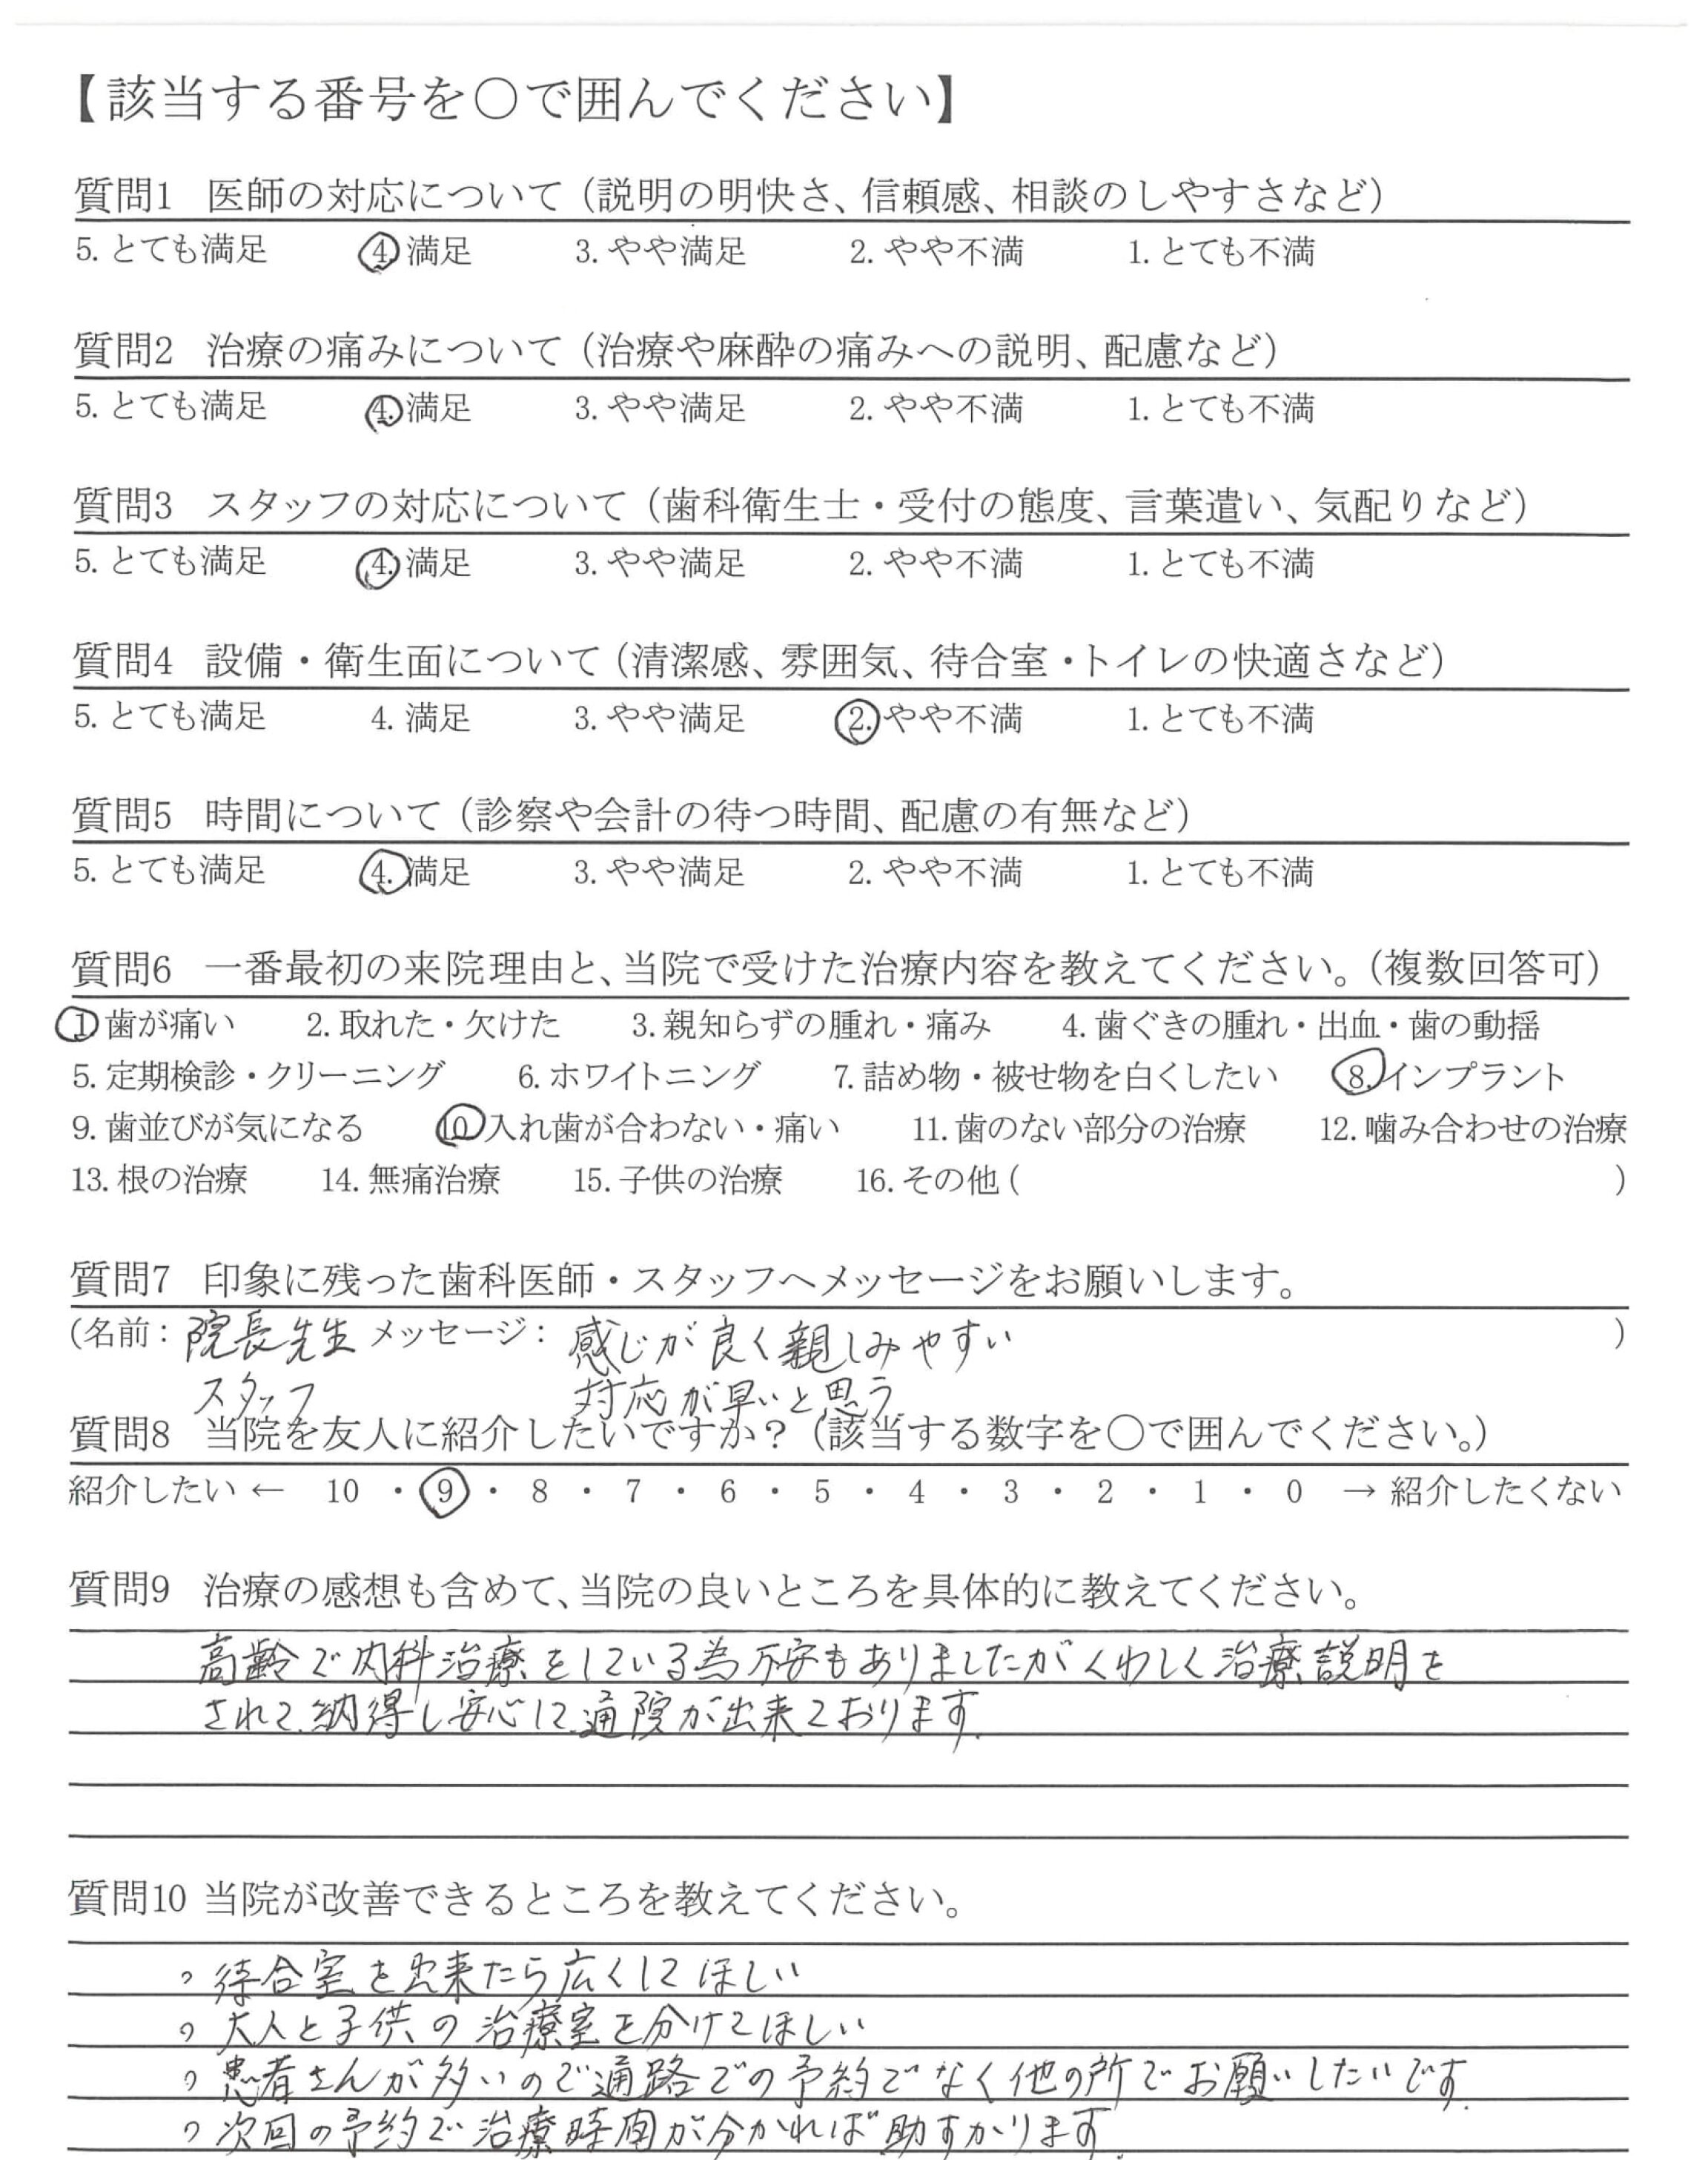 【該当する番号を〇で囲んでください】
質問1 医師の対応について（説明の明快さ、信頼感、相談のしやすさなど）
5. とても満足 4. 満足 3. やや満足 2. やや不満 1. とても不満
質問2 治療の痛みについて（治療や麻酔の痛みへの説明、配慮など）
5. とても満足 4. 満足 3. やや満足 2. やや不満 1. とても不満
質問3 スタッフの対応について（歯科衛生士・受付の態度、言葉遣い、気配りなど）
5. とても満足 4. 満足 3. やや満足 2. やや不満 1. とても不満
質問4 設備・衛生面について（清潔感、雰囲気、待合室・トイレの快適さなど）
5. とても満足 4. 満足 3. やや満足 2. やや不満 1. とても不満
質問5 時間について（診察や会計の待つ時間、配慮の有無など）
5. とても満足 4. 満足 3. やや満足 2. やや不満 1. とても不満
質問6 一番最初の来院理由と、当院で受けた治療内容を教えてください。（複数回答可）
1 歯が痛い 2. 取れた・欠けた 3. 親知らずの腫れ・痛み 4. 歯ぐきの腫れ・出血・歯の動揺
5. 定期検診・クリーニング 6. ホワイトニング 7. 詰め物・被せ物を白くしたい 8. インプラント
9. 歯並びが気になる 10 入れ歯が合わない・痛い 11. 歯のない部分の治療 12. 噛み合わせの治療
13. 根の治療 14. 無痛治療 15. 子供の治療 16. その他（ ）
質問7 印象に残った歯科医師・スタッフへメッセージをお願いします。
（名前： 院長先生 メッセージ： 感じが良く親しみやすい ）
スタッフ 対応が早いと思う.
質問8 当院を友人に紹介したいですか？（該当する数字を〇で囲んでください。）
紹介したい ← 10 ・ 9 ・ 8 ・ 7 ・ 6 ・ 5 ・ 4 ・ 3 ・ 2 ・ 1 ・ 0 → 紹介したくない
質問9 治療の感想も含めて、当院の良いところを具体的に教えてください。
高齢で内科治療をしている為不安もありましたがくわしく治療説明を
されて、納得し安心して、通院が出来ております.
質問10 当院が改善できるところを教えてください。
○ 待合室を出来たら広くしてほしい
○ 大人と子供の治療室を分けてほしい
○ 患者さんが多いので通路での予約でなく他の所でお願いしたいです.
○ 次回の予約で治療時間が分かれば助すかります.